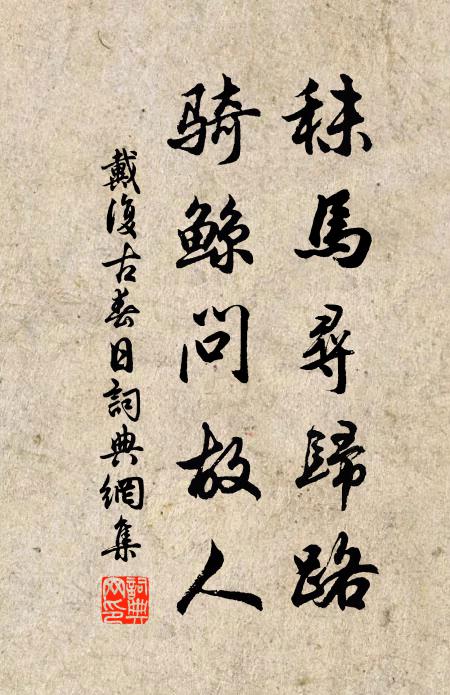 秣馬尋歸路
騎鲸問故人
戴復古春日詞典網集
詞典網印